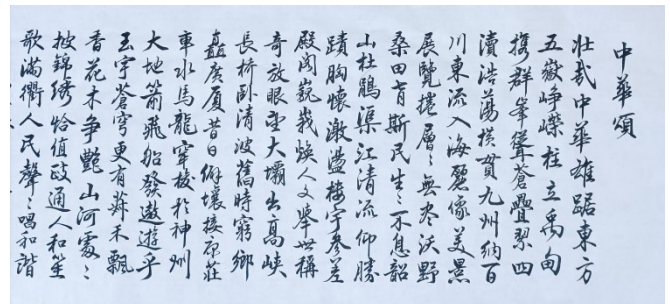 中華頌
壯哉中華雄踞東方
五嶽崢嶸柱立禹甸
攜群峯聳蒼疊翠四
瀆浩蕩横貫九州納百
川東流入海麗像美景
展覽捲層々無盡沃野
桑田育斯民生々不息韶
山杜鵑渠江清流仰勝
蹟胸懷激盪樓宇參差
殿阁巍峩焕人文舉世稱
奇放眼望大壩出高峡
長橋卧清波舊時窮鄉
矗廣厦昔日僻壤接康莊
車水馬龍穿梭於神州
大地箭飛船發遨遊乎
玉宇蒼穹更有嘉禾飄
香花木争艷山河處々
披錦绣恰值政通人和笙
歌滿衢人民聲々唱和諧